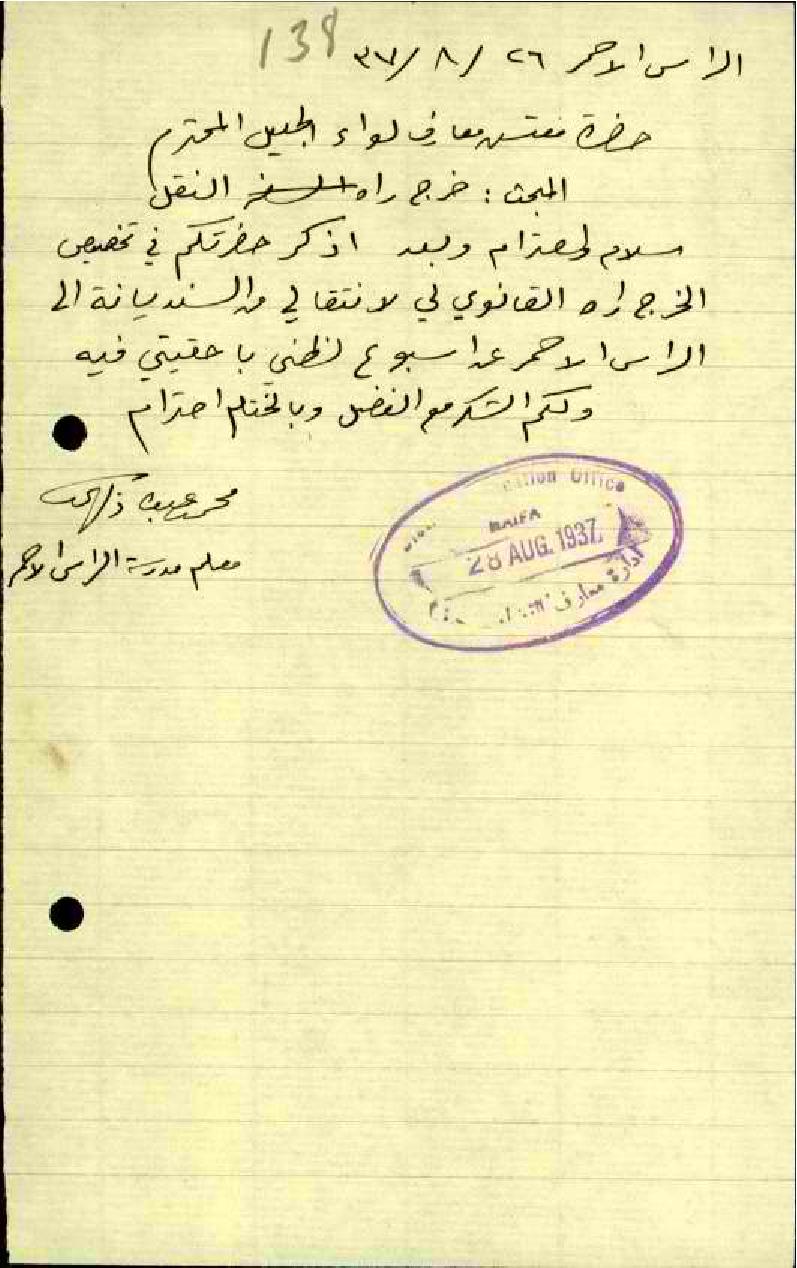 138
الراس الاحمر ٢٦ /٨ /٣٧
حضرة مفتش معارف لواء الجليل المحترم
المبحث : خرج راه النقل
سلام واحترام وبعد اذكر حضرتكم في تخصيص
الخرج راه القانوني لي لانتقالي من السنديانة الى
الراس الاحمر عن اسبوع لظني باحقيتي فيه
ولكم الشكر مع الفضل وبالختام احترام
محمد
معلم مدرسة الراس الاحمر
Office
HAIFA
28 AUG. 1937
ادارة معارف